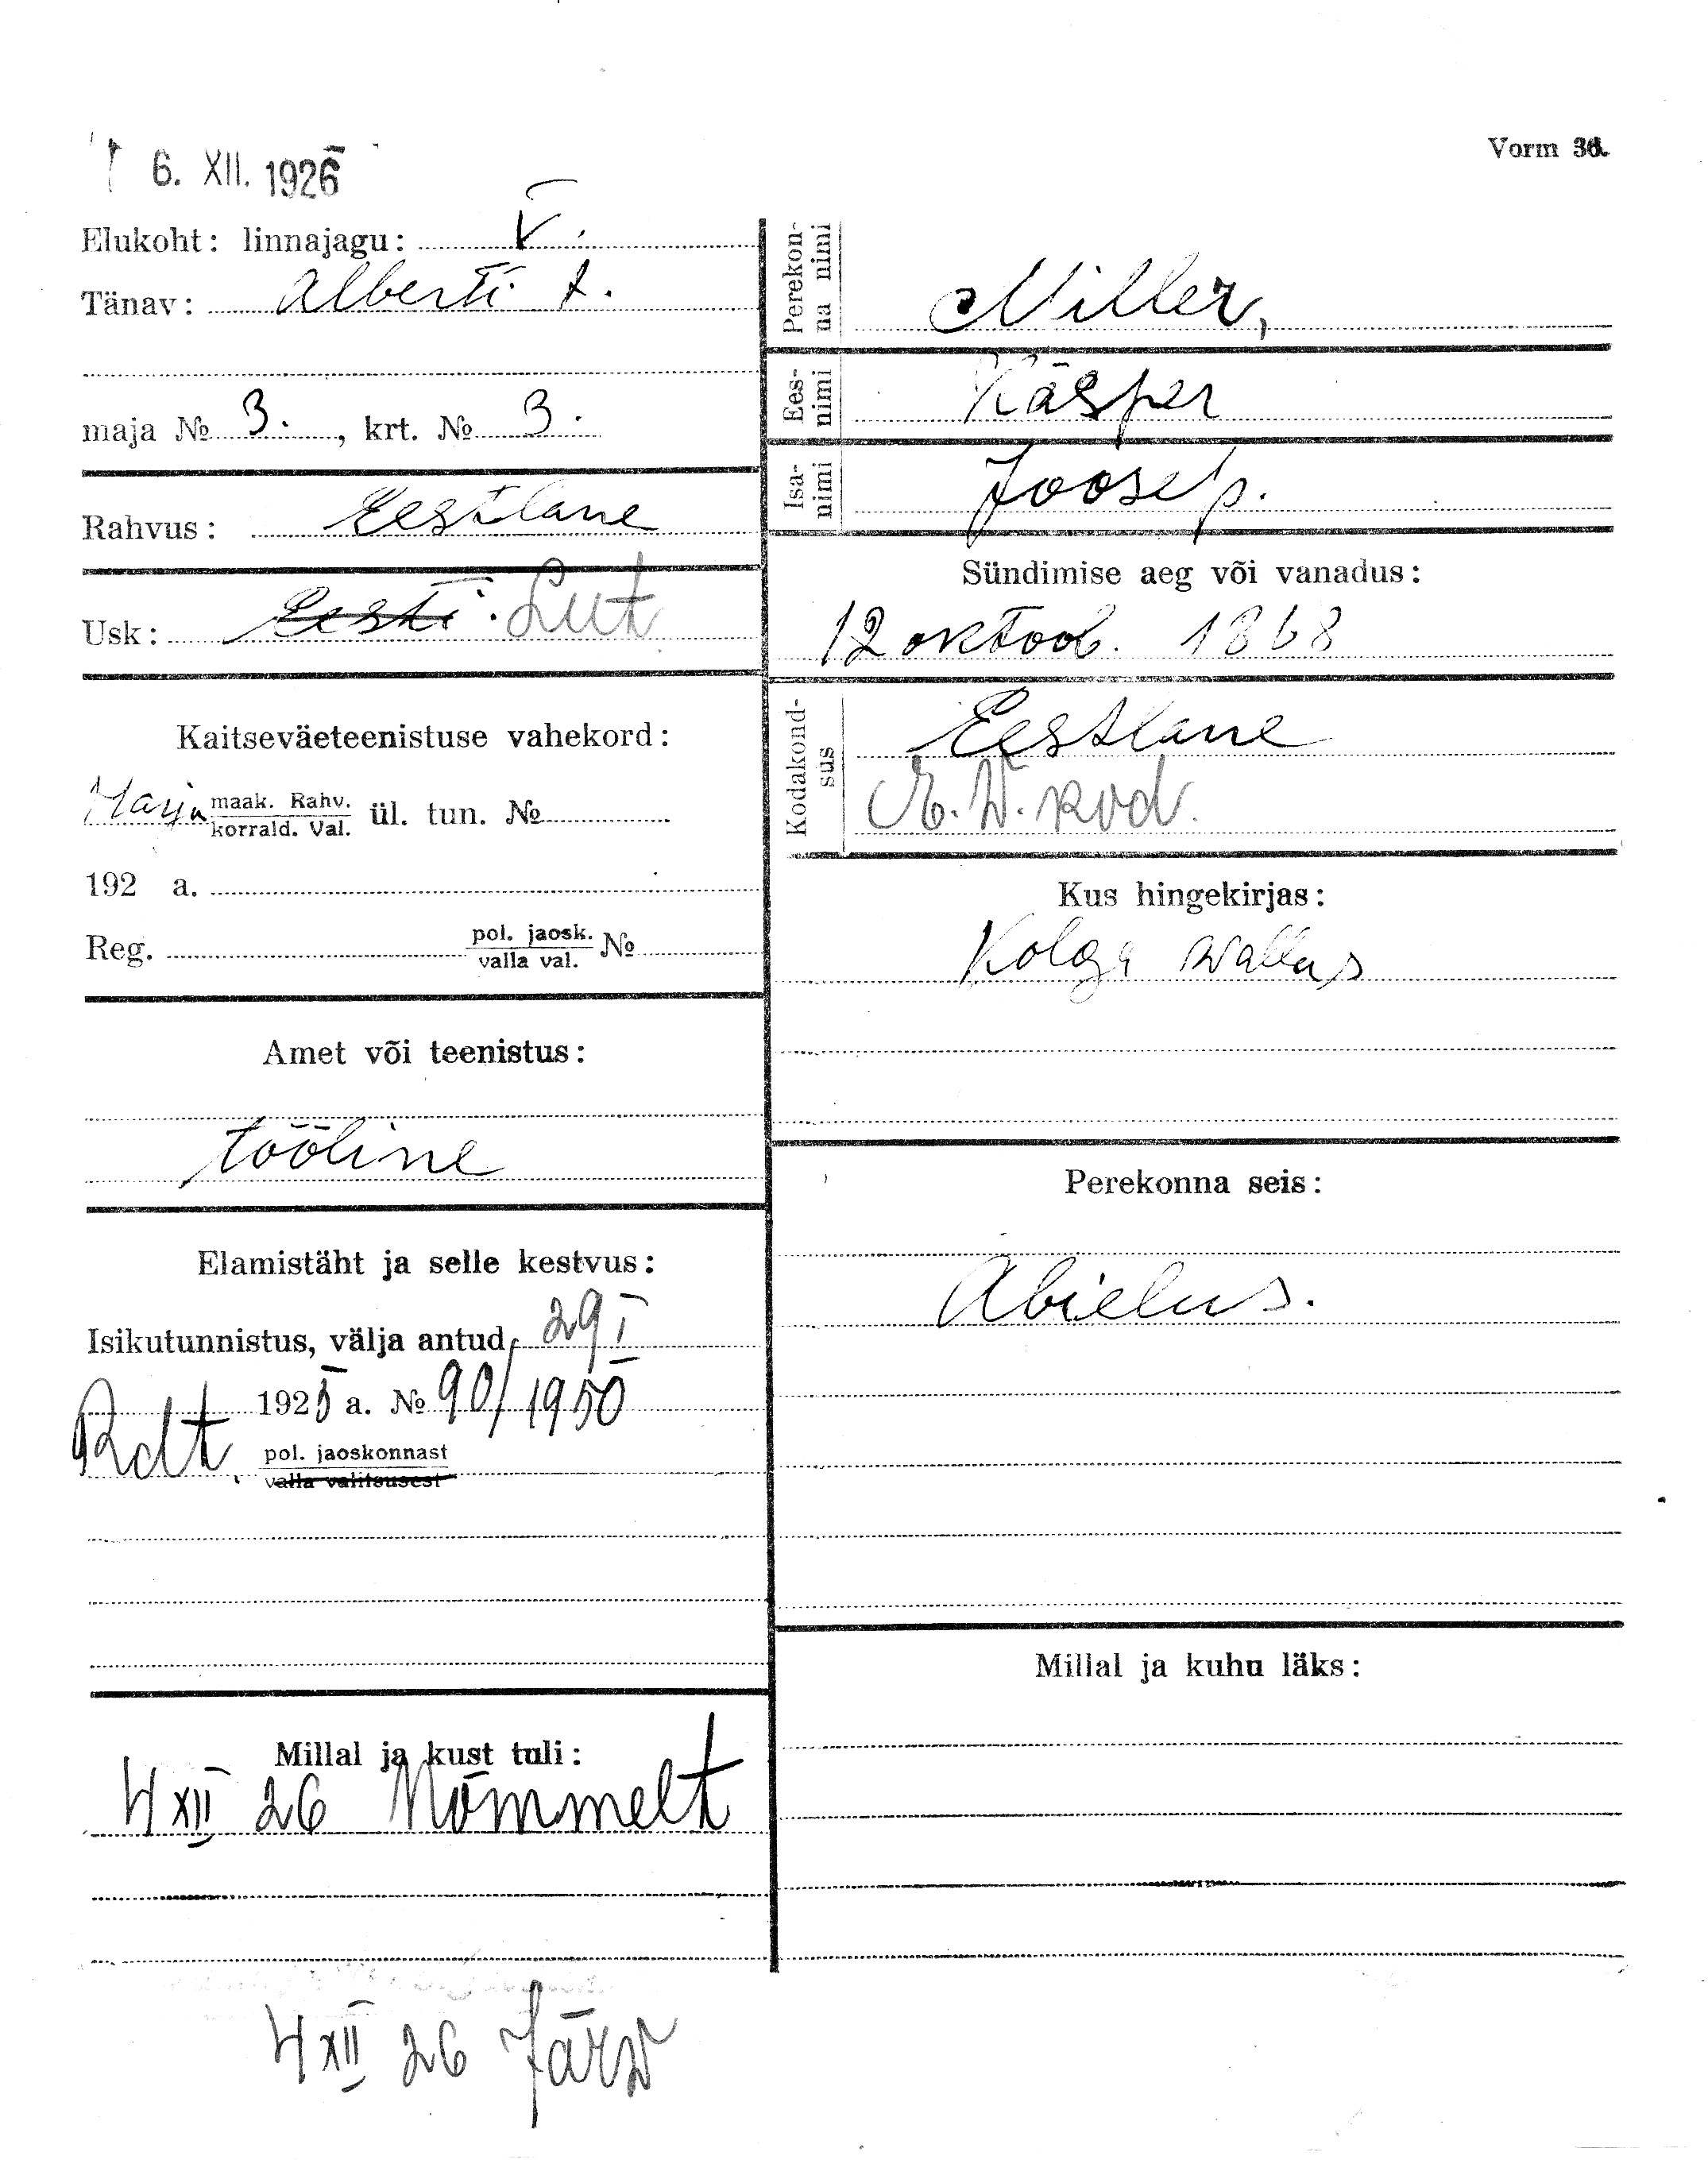 6. XII. 1926
Vorm 36.
Elukoht: linnajagu: V.
Tänav: Alberti t.
maja № 3. , krt. № 3.
Rahvus: Eestlane
Usk: Eesti. Lut
Kaitseväeteenistuse vahekord:
Harju maak. Rahv. ül. tun. №
korrald. Val.
192 a.
Reg. pol. jaosk. №
valla val.
Amet või teenistus:
tööline
Elamistäht ja selle kestvus:
Isikutunnistus, välja antud 29 I
1925 a. № 90/1950
Rdt. pol. jaoskonnast
valla valitsusest
Millal ja kust tuli:
4 XII 26 Nõmmelt
Perekonna nimi
Miller,
Eesnimi
Käsper
Isanimi
Joosep.
Sündimise aeg või vanadus:
12 oktoob. 1868
Kodakondsus
Eestlane
E. W. kod.
Kus hingekirjas:
Kolga wallas
Perekonna seis:
Abielus.
Millal ja kuhu läks:
4 XII 26 Järw